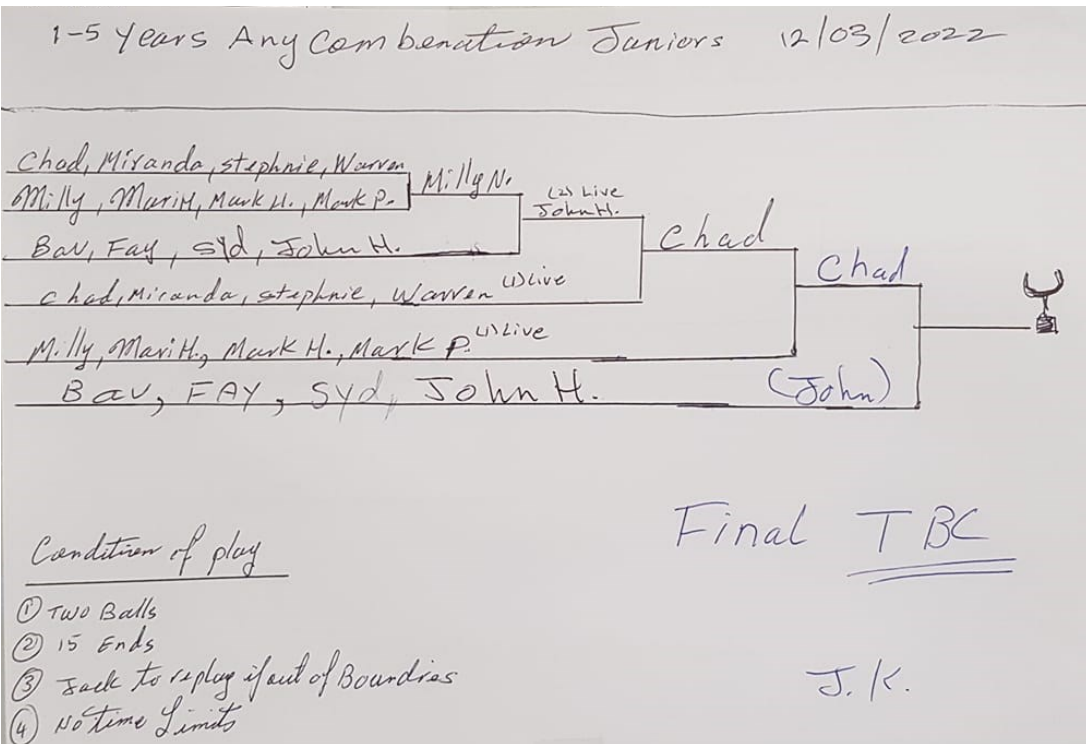 1-5 Years Any Combenation Juniors 12/03/2022
Chad, Miranda, stephnie, Warren
Milly N.
Milly, Mari H, Mark H., Mark P.
(2) Live
John H.
Bav, Fay, Syd, John H.
Chad
Chad
Chad, Miranda, stephnie, Warren (1) Live
Milly, Mari H., Mark H., Mark P. (1) Live
Bav, FAY, Syd, John H.
(John)
Final TBC
Condition of play
① Two Balls
② 15 Ends
③ Jack to replay if out of Boundries
④ No time Limits
J.K.